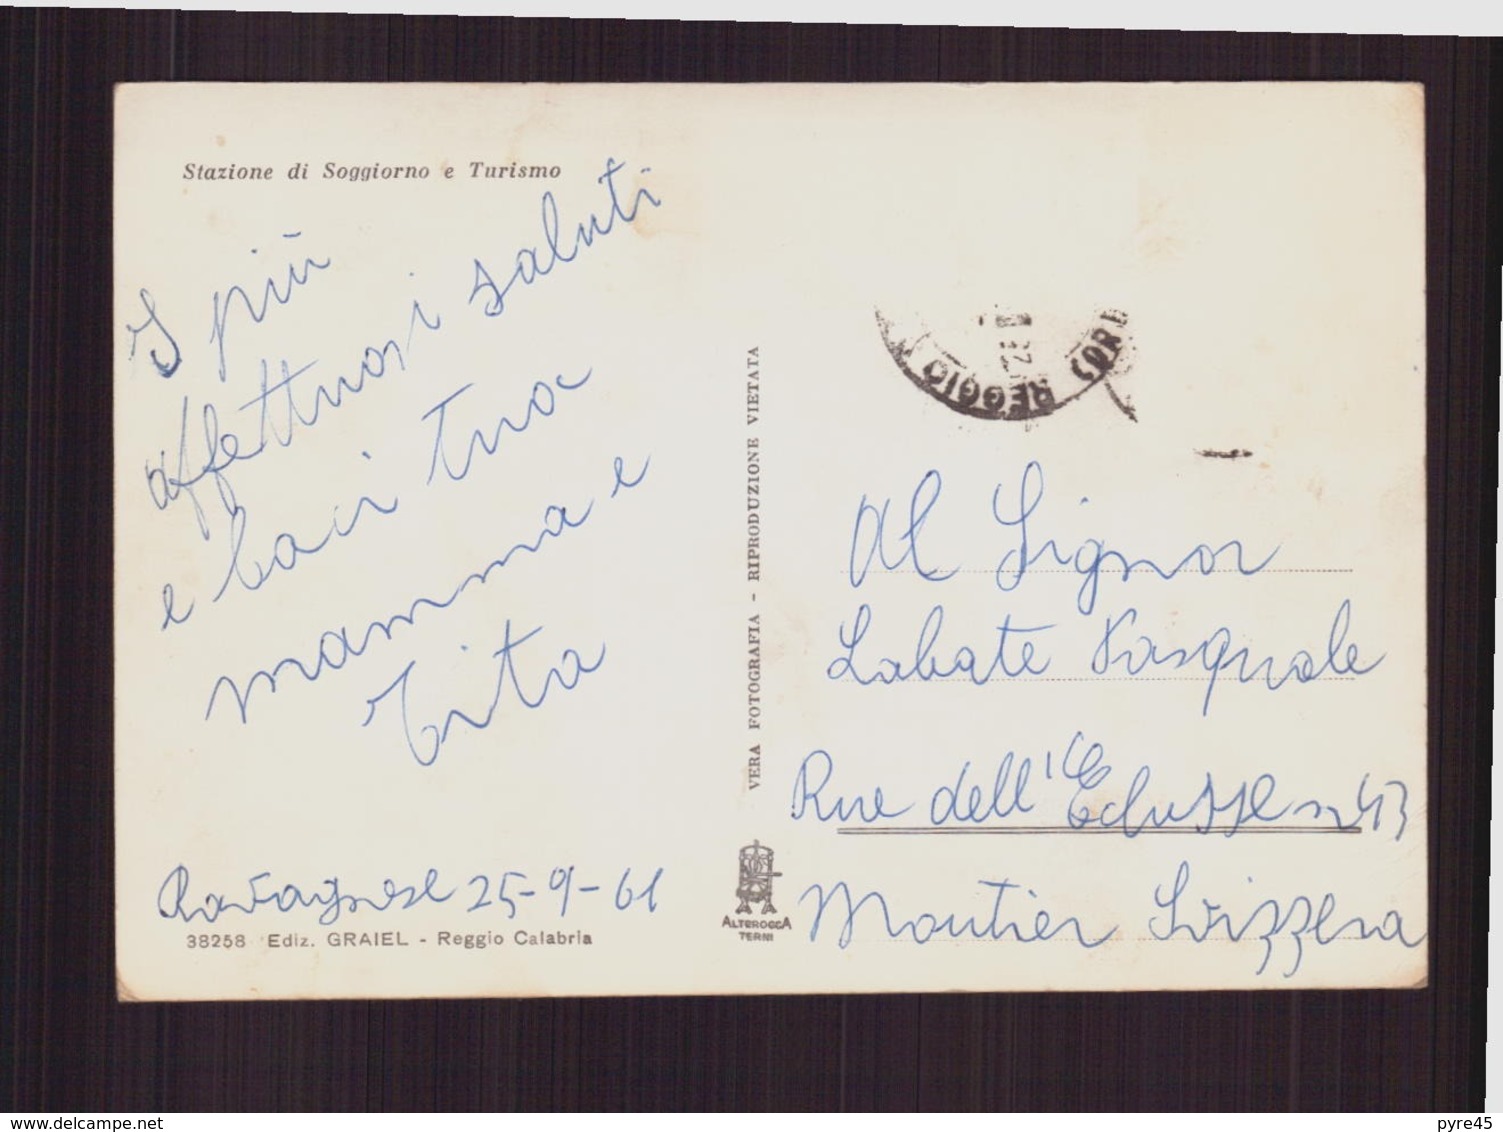 Stazione di Soggiorno e Turismo
I più
affettuosi saluti
e baci tua
mamma e
Tita
Ravagnese 25-9-61
38258 Ediz. GRAIEL - Reggio Calabria
VERA FOTOGRAFIA - RIPRODUZIONE VIETATA
ALTEROCCA
TERNI
REGGIO
Al Signor
Labate Pasquale
Rue dell'Eclusse n 43
Moutier Svizzera
www.delcampe.net
pyre45